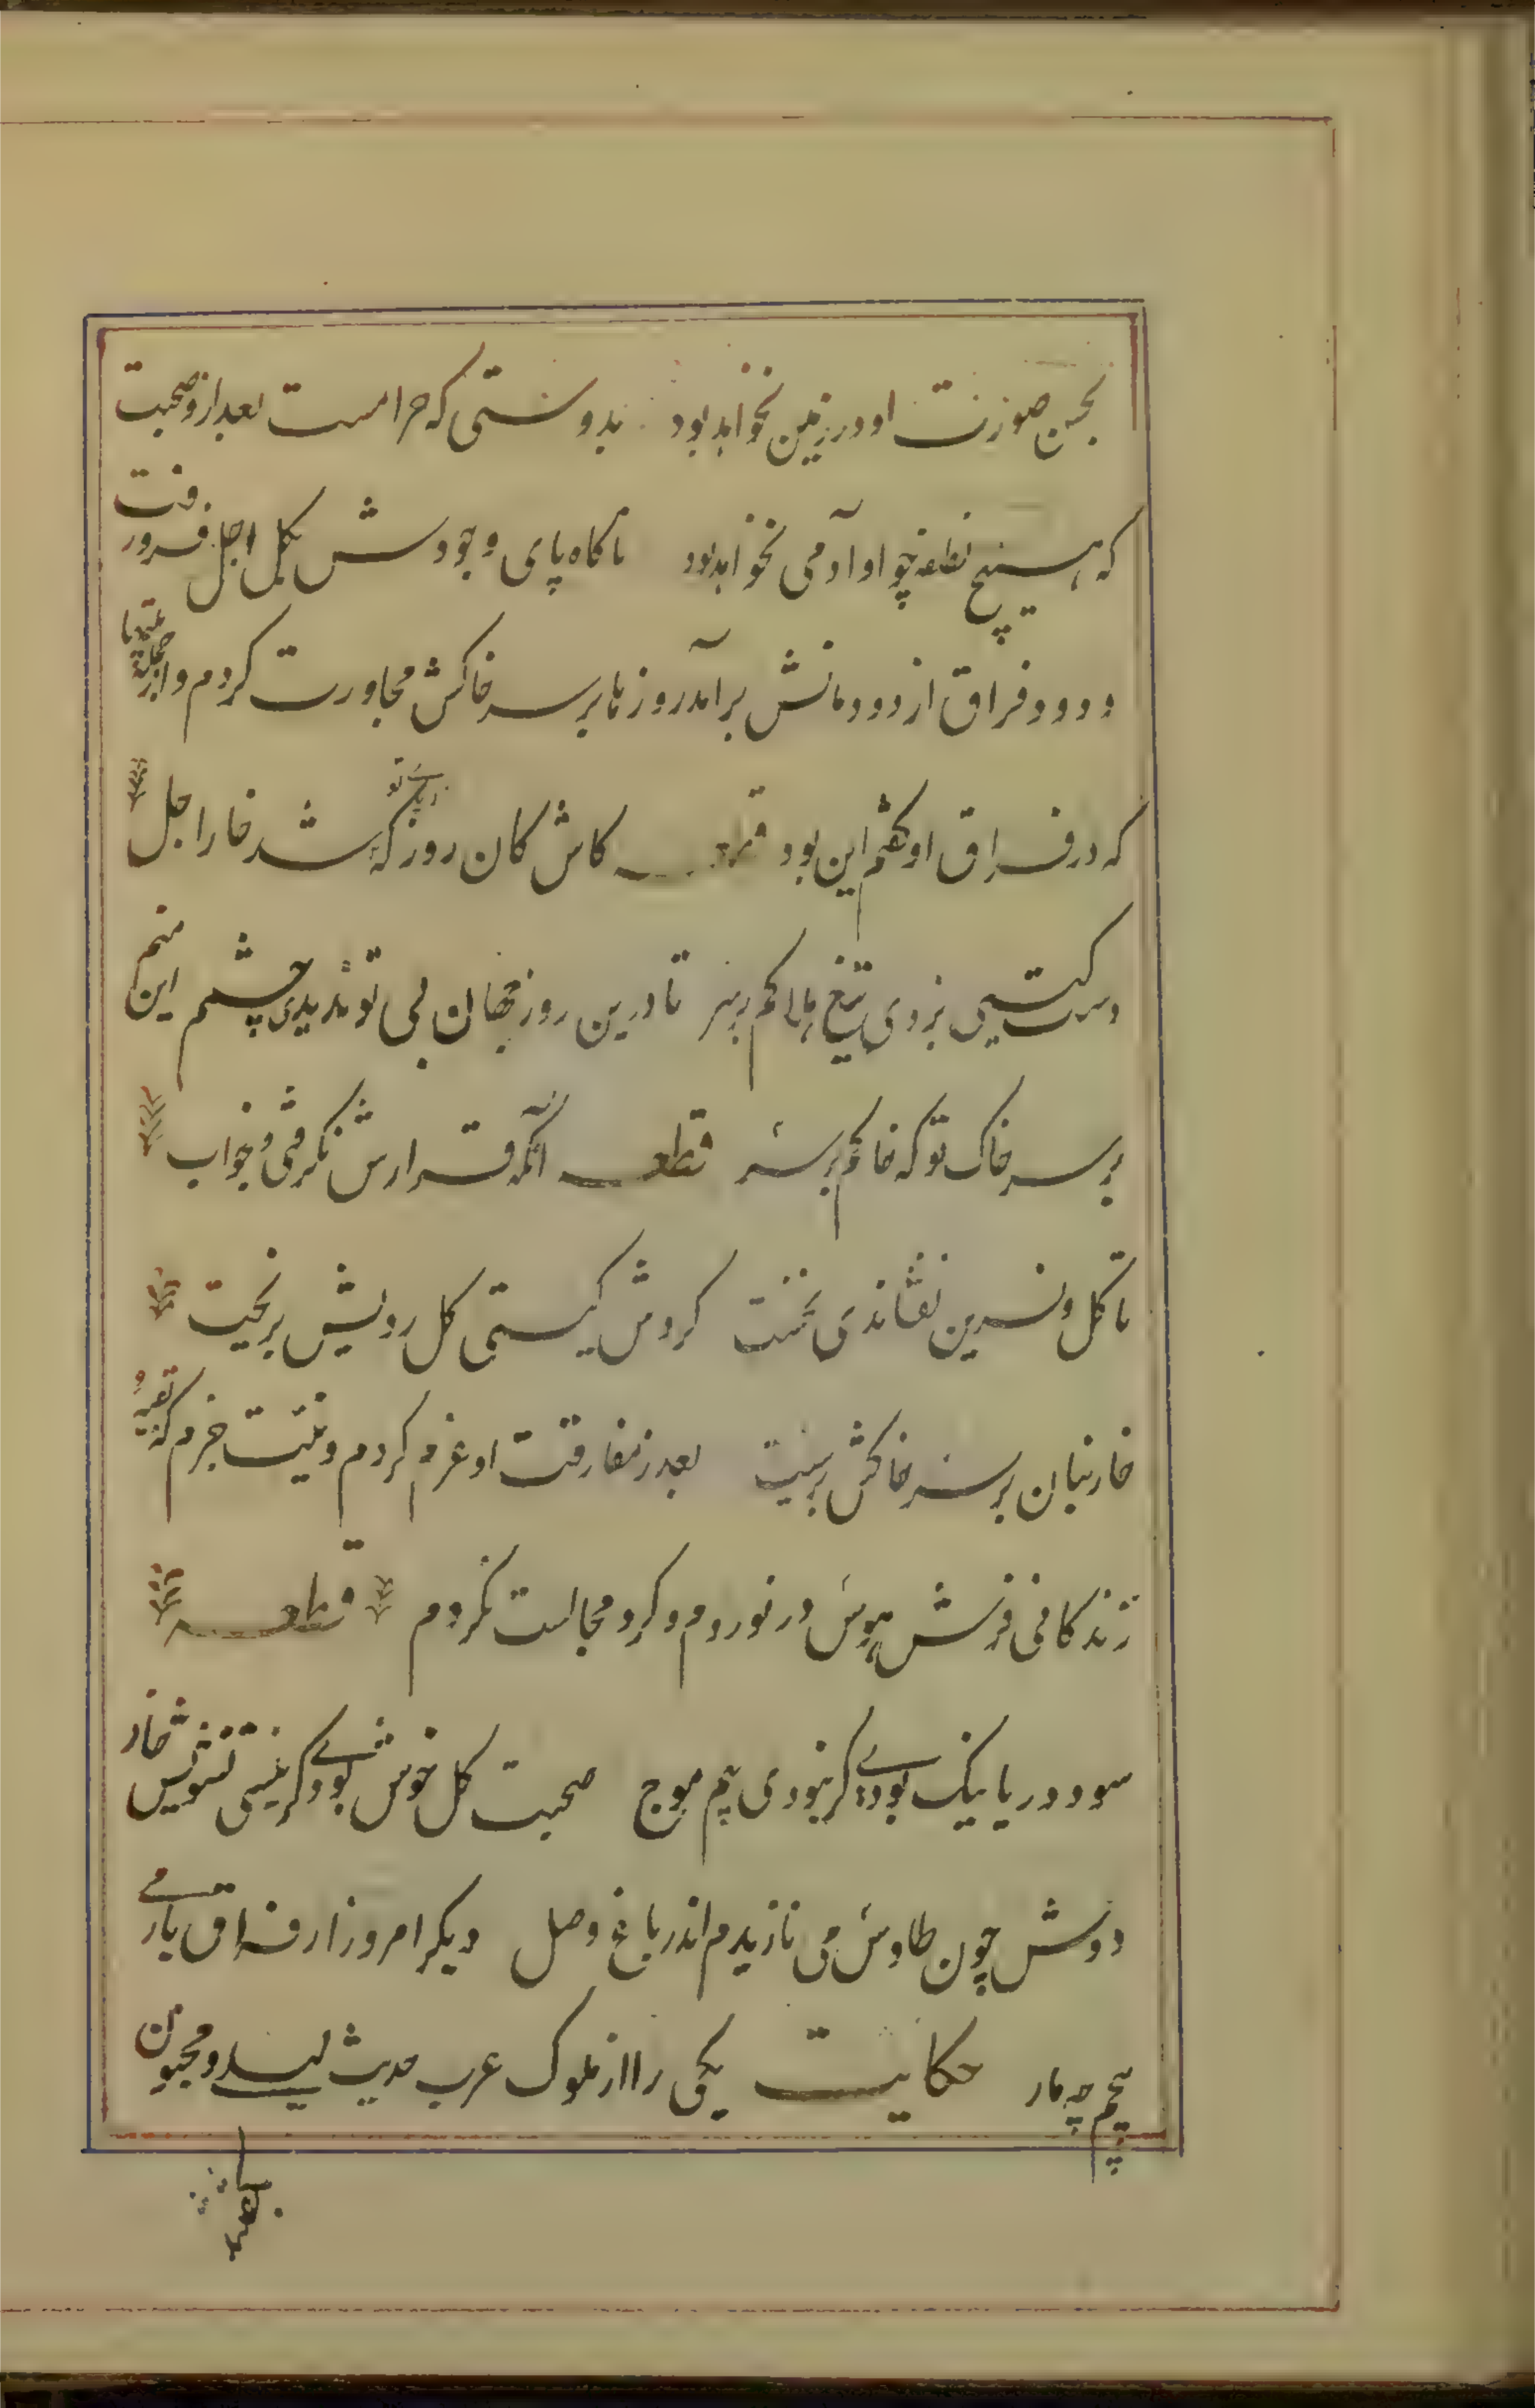 بحسن صورت او در زمین نخواهد بود بدوستی که حرامست بعد ازو صحبت
که هیچ نطفه چو او آدمی نخواهد بود ناکاه پای وجودش بکل اجل فرو رفت
و دود فراق از دودمانش برآمد روزها بر سر خاکش مجاورت کردم و از جمله بیتها
که در فراق او کفتم این بود قطعه کاش کان روز که در پای تو شد خار اجل
دست کیتی بزدی تیغ هلاکم بر سر تا درین روز جهان بی تو ندیدی چشمم این منم
بر سر خاک تو که خاکم بر سر قطعه آنکه قرارش نکرفتی و خواب
تا کل و نسرین نفشاندی نخست کردش کیتی کل رویش بریخت
خار بنان بر سر خاکش برست بعد از مفارقت او عزم کردم و نیت جزم که بقیه
زندکانی فرش هوس در نوردم و کرد مجالست نکردم قطعه
سود دریا نیک بودی کر نبودی بیم موج صحبت کل خوش بودی کر نیستی تشویش خار
دوش چون طاوس می نازیدم اندر باغ وصل دیکر امروز از فراق یار می
پیچم چو مار حکایت یکی را از ملوک عرب حدیث لیلی و مجنون